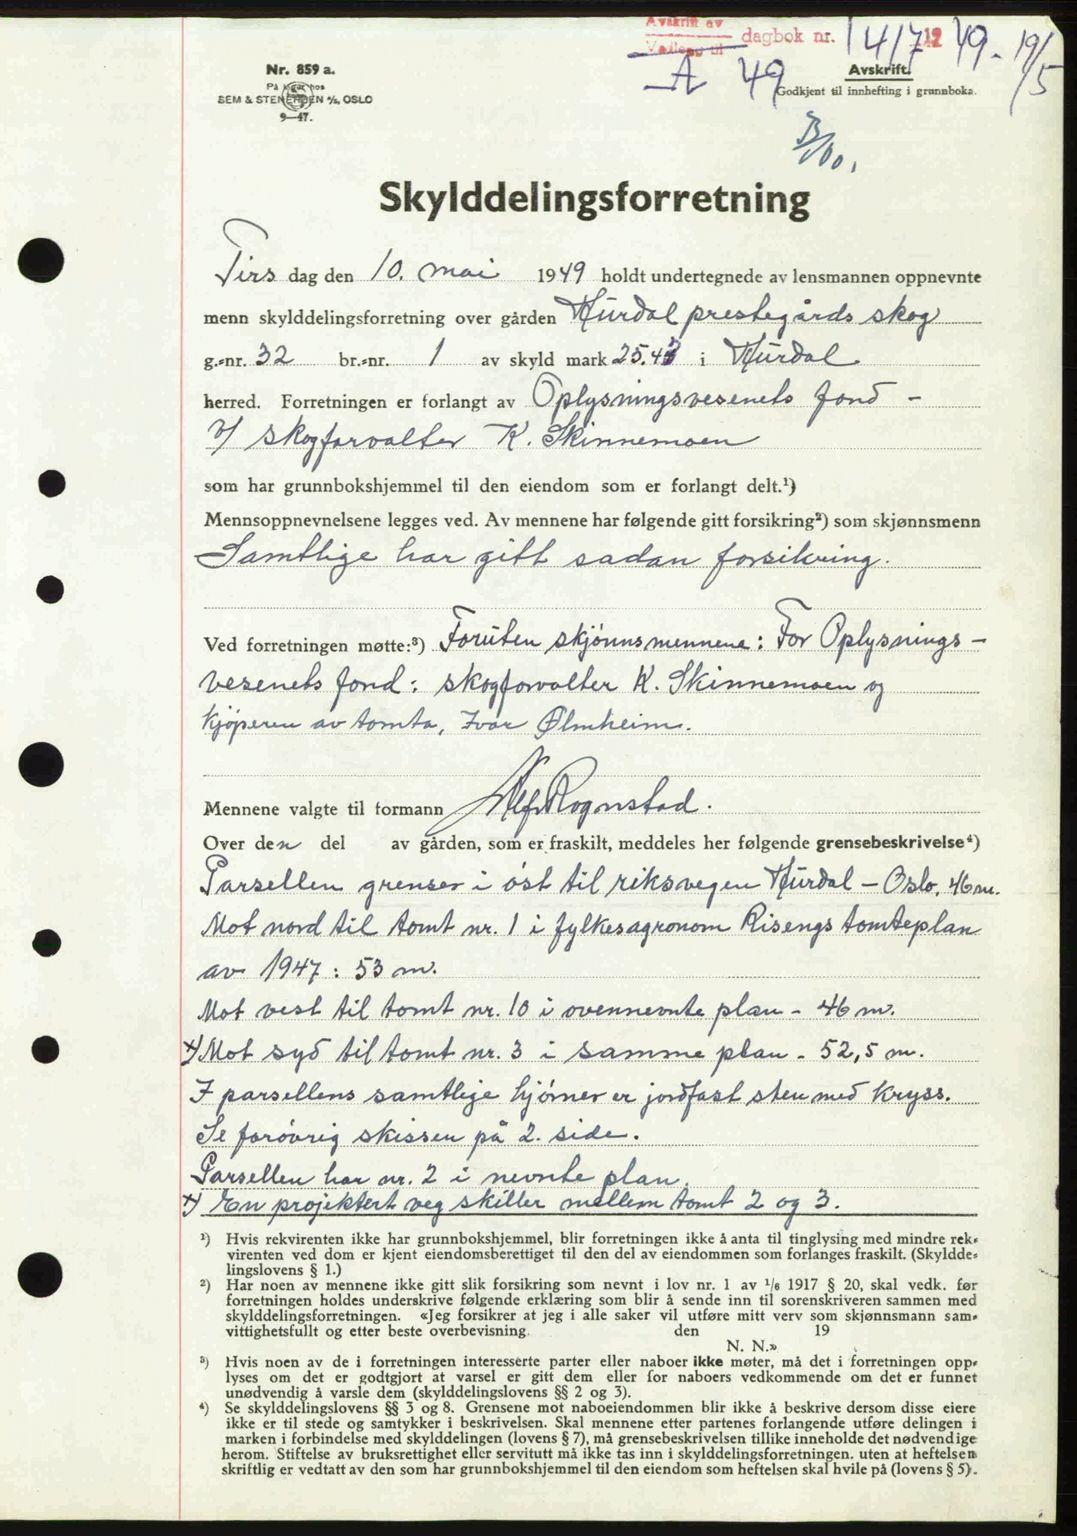 Avskrift av
Vedlegg til
dagbok nr. 1417 1949 - 19/5
A 49
Nr. 859 a.
På lager hos
SEM & STENERSEN A/S, OSLO
9—47.
Avskrift.
Godkjent til innhefting i grunnboka.
Skylddelingsforretning
Tirs dag den 10. mai 1949 holdt undertegnede av lensmannen oppnevnte
menn skylddelingsforretning over gården Hurdal prestegårds skog
g.-nr. 32 br.-nr. 1 av skyld mark 25.43 i Hurdal
herred. Forretningen er forlangt av Oplysningsvesenets fond -
v/ skogforvalter K. Skinnemoen
som har grunnbokshjemmel til den eiendom som er forlangt delt.¹)
Mennsoppnevnelsene legges ved. Av mennene har følgende gitt forsikring²) som skjønnsmenn
Samtlige har gitt sådan forsikring.
Ved forretningen møtte:³) Foruten skjønnsmennene: For Oplysnings-
vesenets fond: skogforvalter K. Skinnemoen og
kjøperen av tomta, Ivar Ølmheim.
Mennene valgte til formann Alf Rognstad.
Over den del av gården, som er fraskilt, meddeles her følgende grensebeskrivelse⁴)
Parsellen grenser i øst til riksvegen Hurdal - Oslo, 46 m.
Mot nord til tomt nr. 1 i fylkesagronom Risengs tomteplan
av 1947: 53 m.
Mot vest til tomt nr. 10 i ovennevnte plan - 46 m.
x) Mot syd til tomt nr. 3 i samme plan - 52,5 m.
I parsellens samtlige hjørner er jordfast sten med kryss.
Se forøvrig skissen på 2. side.
Parsellen har nr. 2 i nevnte plan.
x) En projektert veg skiller mellem tomt 2 og 3.
¹) Hvis rekvirenten ikke har grunnbokshjemmel, blir forretningen ikke å anta til tinglysing med mindre rek-
virenten ved dom er kjent eiendomsberettiget til den del av eiendommen som forlanges fraskilt. (Skyldde-
lingslovens § 1.)
²) Har noen av mennene ikke gitt slik forsikring som nevnt i lov nr. 1 av 1/6 1917 § 20, skal vedk. før
forretningen holdes underskrive følgende erklæring som blir å sende inn til sorenskriveren sammen med
skylddelingsforretningen. «Jeg forsikrer at jeg i alle saker vil utføre mitt verv som skjønnsmann sam-
vittighetsfullt og etter beste overbevisning. den 19
N. N.»
³) Hvis noen av de i forretningen interesserte parter eller naboer ikke møter, må det i forretningen opp-
lyses om det er godtgjort at varsel er gitt dem eller for naboers vedkommende om det er funnet
unødvendig å varsle dem (skylddelingslovens §§ 2 og 3).
⁴) Se skylddelingslovens §§ 3 og 8. Grensene mot naboeiendommen blir ikke å beskrive dersom disse eiere
ikke er til stede og samtykker i beskrivelsen. Skal mennene etter partenes forlangende utføre delingen i
marken i forbindelse med skylddelingen (lovens § 7), må grensebeskrivelsen tillike inneholde det nødvendige
herom. Stiftelse av bruksrettighet eller servitutt må ikke tas inn i skylddelingsforretningen. uten at heftelsen
skriftlig er vedtatt av den som har grunnbokshjemmel til den eiendom som heftelsen skal hvile på (lovens § 5).